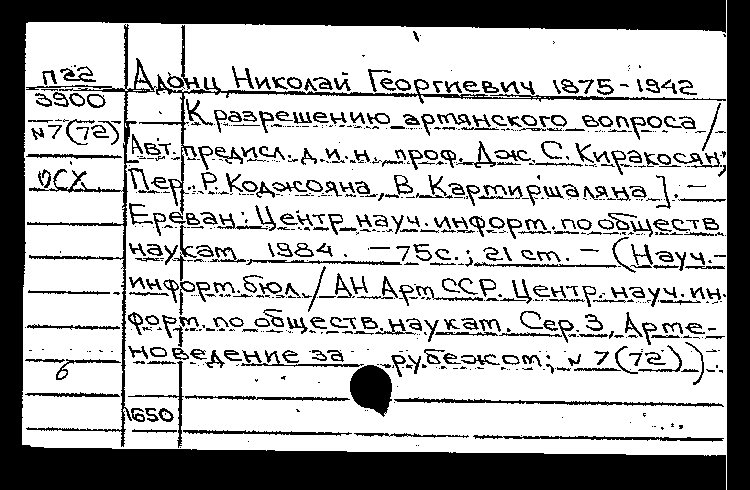 П22 Адонц Николай Георгиевич 1875-1942
3900 К разрешению армянского вопроса /
N7(72) Авт. предисл. д. и. н., проф. Дж. С. Киракосян;
ОСХ Пер. Р. Коджояна, В. Картиршаляна]. –
Ереван: Центр науч. информ. по обществ
наукам, 1984. – 75с.; 21 см. – (Науч.-
информ. бюл. / АН Арм ССР. Центр. науч. ин-
форм. по обществ. наукам. Сер. 3, Арме-
новедение за рубежом; N 7(72)).
6
1650